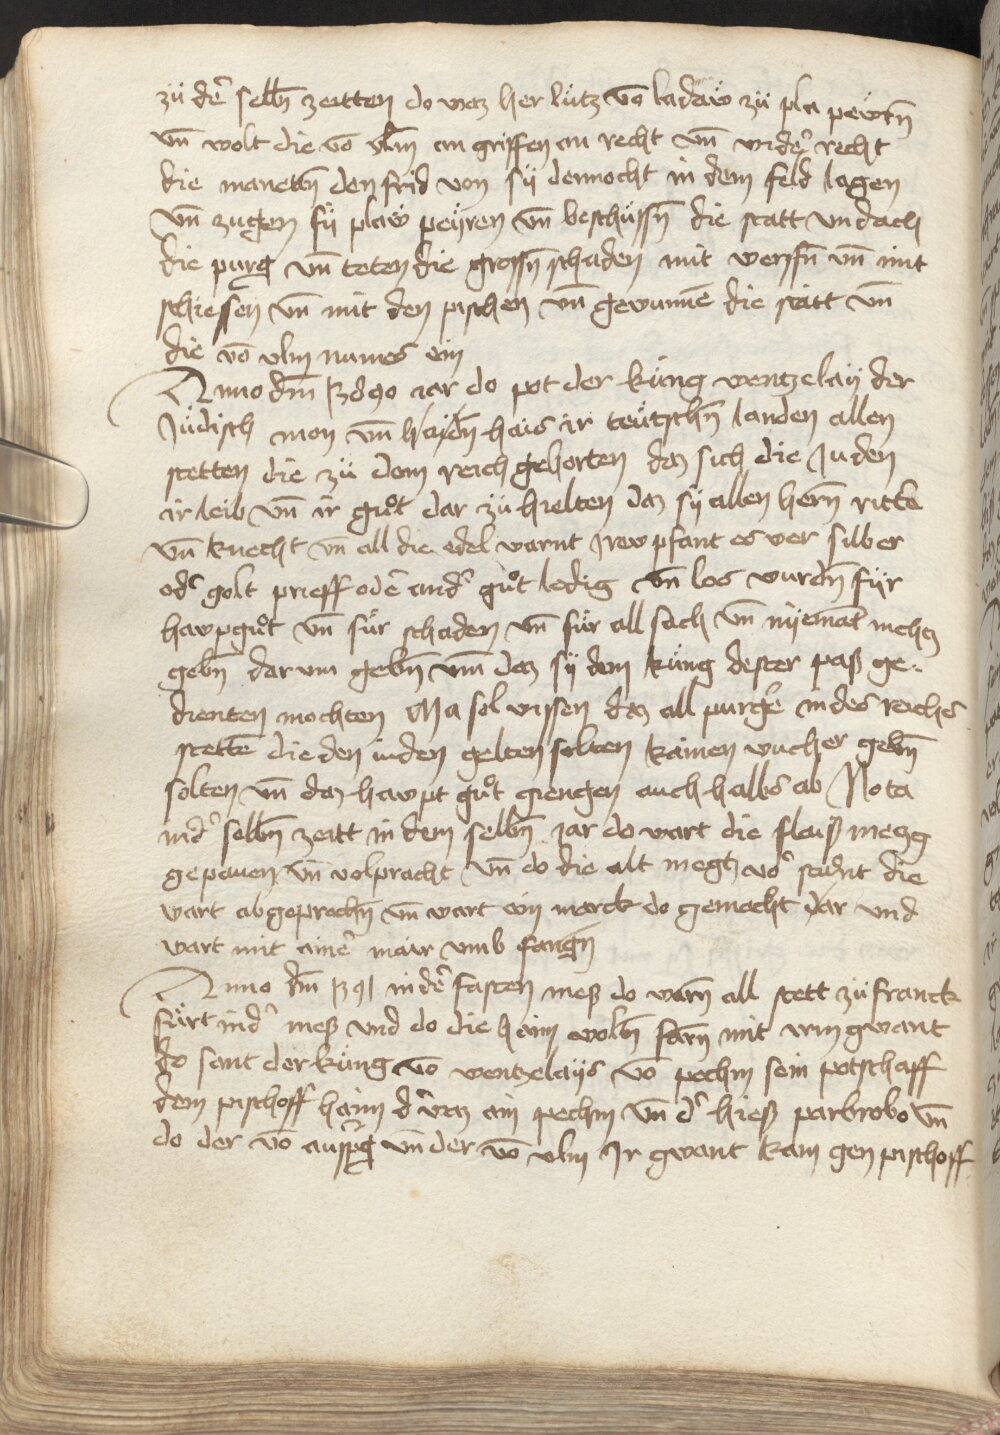 zü dē selbn̄ zeitten do waz her lütz vō ladäw zü pla pewrn̄
vn̄ wolt die vō vlm̄ an griffen an recht vn̄ widē recht
die maneten den frid von sÿ dennocht in dem feld lagen
vn̄ zugen fü plaw peÿren vn̄ beschussn̄ die statt vndach
die purg vn̄ teten die grossn̄ schaden mit werfn̄ vn̄ mit
schiessen vn̄ mit den pischen vn̄ gewunnē die statt vn̄
die vō vlm names ein
Anno dm̄ 1390 iar do pot der küng wentzelaÿ der
Jüdisch mon vn̄ haÿdn̄ hais ir teütschn̄ landen allen
stetten die zü dem reich gehorten daz sich die Juden
ir leib vn̄ ir gůt dar zü hielten daz sÿ allen hern̄ rittē
vn̄ knecht vn̄ all die edel warnt Jrew pfant es wer silber
odē golt prieff odē andē gůt ledig vn̄ los wurdn̄ für
hawpgůt vn̄ für schaden vn̄ für all sach vn̄ nÿemāt nichtz
gebn̄ darum gebn̄ vm̄ daz sÿ dem küng dester paß ge-
dienten mochten Ma sol wissen daz all purgē in des reiches
stettē die den iuden gelten solten kainen wucher gebn̄
solten vn̄ daz hawpt gůt giengen auch halbs ab Nota
indē selbn̄ zeitt in dem selbn̄ iar do wart die flaiß metzg
gepauen vn̄ volpracht vn̄ do die alt metzg vor stůnt die
wart abgeprochn̄ vn̄ wart ein marck do gemacht dar vnd
wart mit ainē maur vmb fangn̄
Anno dm̄ 1391 in dē fasten meß do warn̄ all stett zü franck
fürt indē meß vnd do die haim woltn̄ farn̄ mit irm gwant
do sant der küng vō wentzelaÿs vō pechm sein potschaff
dem pischoff haim dē waz ain pechm vn̄ dē hieß parbrobo vn̄
do der vō auspurg vn̄ der vō vlm Jr gwant kam gen pischoff